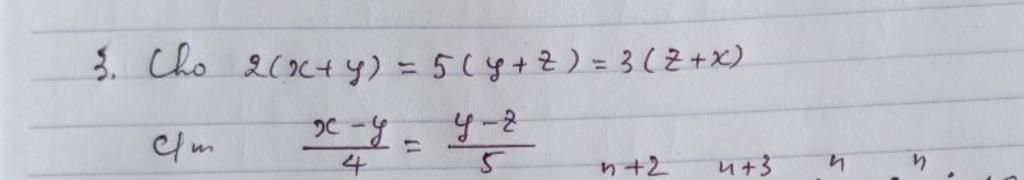 3. Cho 2(x+y) = 5(y+z) = 3(z+x)
c/m \frac{x-y}{4} = \frac{y-z}{5}
n+2 n+3 n n